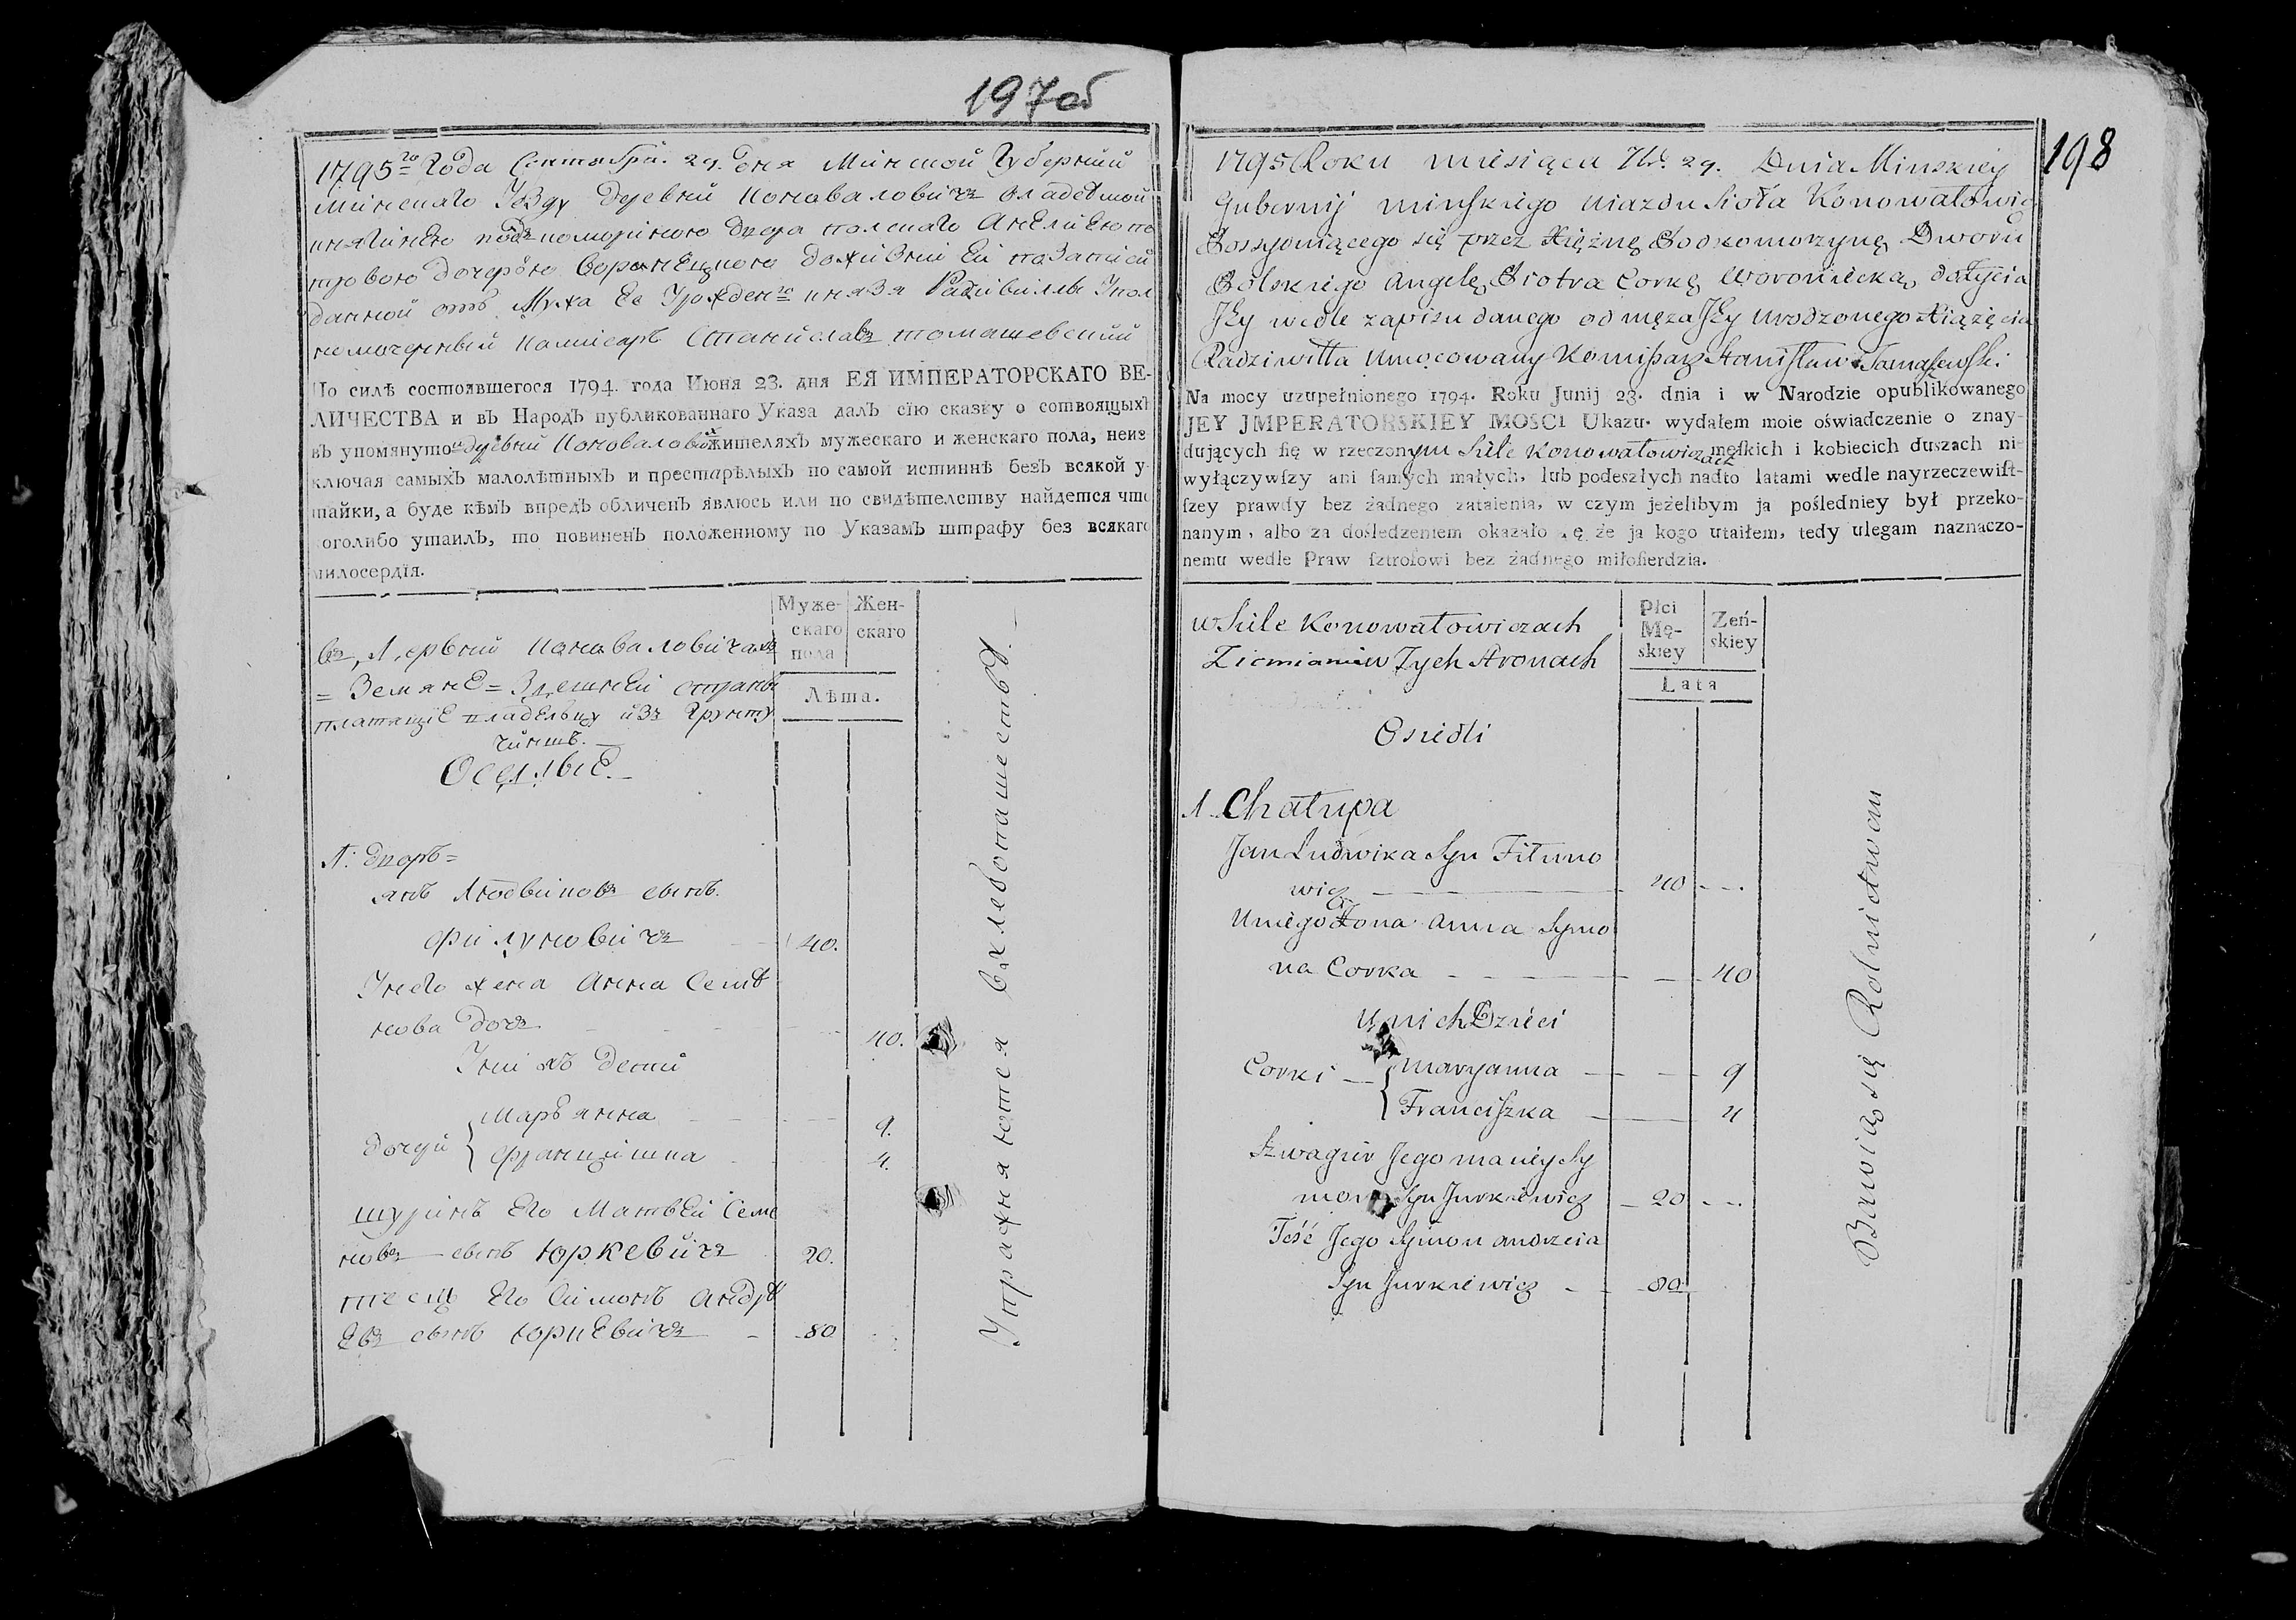 197об
1795го Года Сентября 29. дня Минской Губернии
Минскаго Уѣзду деревни Коноваловичъ владѣемой
княгинею подкомориною двора полскаго Анелиею пе
тровою дочерью Воронецкою дожывний Ей по записи
данной отъ Мужа Ее Урожденго князя Радивиллы Упол
номоченный Коммисаръ Станиславъ томашевский
По силѣ состоявшегося 1794. года Июня 23. дня ЕЯ ИМПЕРАТОРСКАГО ВЕ-
ЛИЧЕСТВА и въ Народъ публикованнаго Указа далъ сїю сказку о состоящыхъ
въ упомянутой деревни Коноваловичахъ жителяхъ мужескаго и женскаго пола, неиз
ключая самыхъ малолѣтныхъ и престарѣлыхъ по самой истиннѣ безъ всякой у-
тайки, а буде кѣмъ впредъ обличенъ явлюсь или по свидѣтелству найдется что
коголибо утаилъ, то повиненъ положенному по Указамъ штрафу без всякаго
милосердїя.
Муже-
скаго
пола
Жен-
скаго
Лѣта.
въ деревни Коноваловичахъ
= Земяне = Здешней стране
платящие владельцу изъ грунту
чиншъ.
Оселые.
1. дворъ =
янъ Людвиковъ сынъ
филуновичъ 40.
Унего жена Анна Семе
нова дочь 40.
Унихъ дети
дочери { Марьянна 9.
францишка 4.
шуринъ Его Матвей Семе
новъ сынъ юркевичъ 20.
тесть Его Симонъ андре
евъ сынъ юркевичъ 80
Упражняются въ хлебопашестве.
198
1795 Roku miesiąca 7br. 29. Dnia Minskiey
Gubernij minskiego uiazdu Sioła Konowałowic
Possyduiącego się przez Xiężnę Podkomorzynę Dworu
Polskiego Angelę Piotra Corkę Woroniecką dożycia
Jey wedle zapisu danego od męza Jey urodzonego Xiążęcia
Radziwiłła umocowany Komissarz Stanisław Tomaszewski
Na mocy uzupełnionego 1794. Roku Junij 23. dnia i w Narodzie opublikowanego
JEY JMPERATORSKIEY MOSCI Ukazu. wydałem moie oświadczenie o znay-
dujących się w rzeczonym Siele Konowałowiczach męskich i kobiecich duszach nie
wyłączywszy ani samych małych, lub podeszłych nadto latami wedle nayrzeczewist-
szey prawdy bez żadnego zatajenia, w czym jeżelibym ja poślednиey był przeko-
nanym, albo za dośledzeniem okazało się że ja kogo utaiłem, tedy ulegam naznaczo-
nemu wedle Praw sztrofowi bez żadnego miłosierdzia.
Płci
Mę-
skiey
Zeń-
skiey
Lata
w Siele Konowałowiczach
Ziemianie w Tych Stronach
Osiedli
1. Chałupa
Jan Ludwika Syn Filuno
wicz 40
Uniego Żona Anna Symo
na Corka 40
U nich Dzieci
Corki { Maryanna 9
Franciszka 4
Szwagier Jego maciey Sy
mona Syn Jurkiewicz 20
Teść Jego Symon Andrzeia
Syn Jurkiewicz 80
Bawią się Rolnictwem